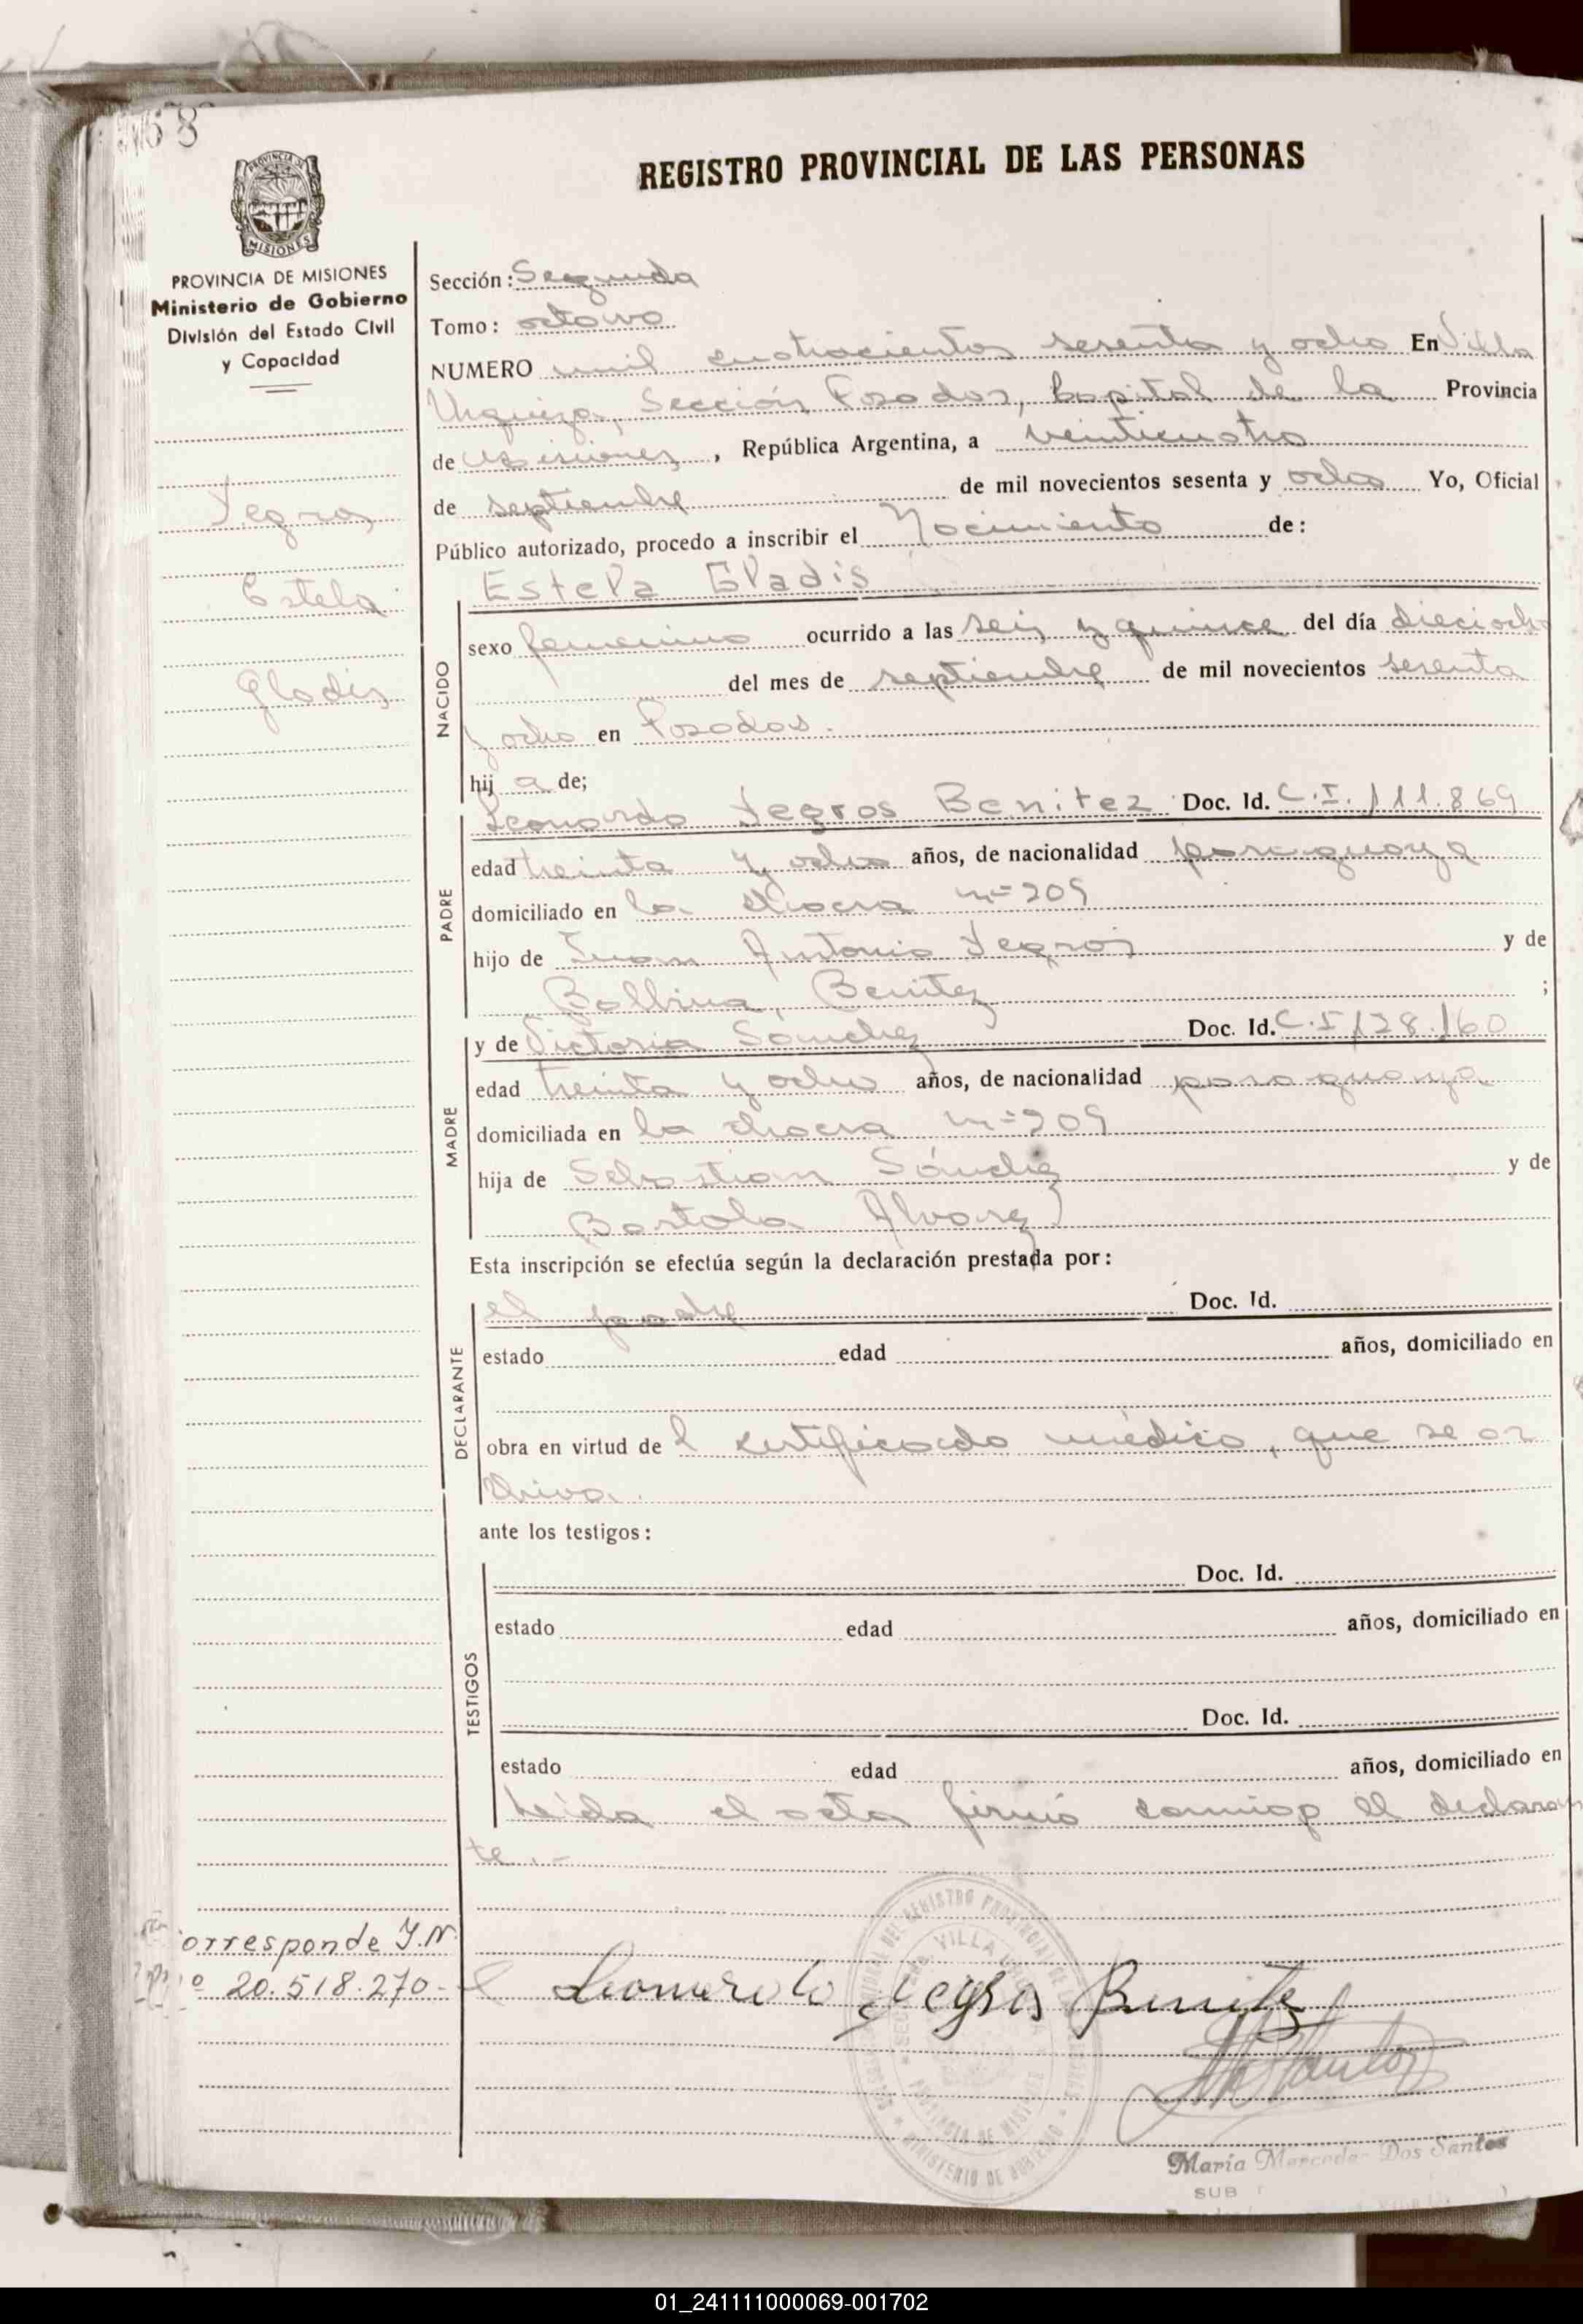 68
PROVINCIA DE MISIONES
MISIONES
PROVINCIA DE MISIONES
Ministerio de Gobierno
División del Estado Civil
y Capacidad
Yegros
Estela
Gladis
REGISTRO PROVINCIAL DE LAS PERSONAS
Sección: Segunda
Tomo: octavo
NUMERO mil cuatrocientos sesenta y ocho En Villa
Urquiza, Sección Posadas, Capital de la Provincia
de Misiones, República Argentina, a veinticuatro
de septiembre de mil novecientos sesenta y ocho Yo, Oficial
Público autorizado, procedo a inscribir el Nacimiento de:
NACIDO
Estela Gladis
sexo femenino ocurrido a las seis y quince del día dieciocho
del mes de septiembre de mil novecientos sesenta
y ocho en Posadas.
hij a de;
PADRE
Leonardo Yegros Benitez Doc. Id. C.I. 111.869
edad treinta y ocho años, de nacionalidad paraguaya
domiciliado en la chacra nº 209
hijo de Juan Antonio Yegros y de
Balbina Benitez ;
MADRE
y de Victoria Sánchez Doc. Id. C.I 128.160
edad treinta y ocho años, de nacionalidad paraguaya
domiciliada en la chacra nº 209
hija de Sebastian Sánchez y de
Bartola Alvarez
Esta inscripción se efectúa según la declaración prestada por:
DECLARANTE
el padre Doc. Id.
estado edad años, domiciliado en
obra en virtud de l certificado médico, que se ar
chiva.
ante los testigos:
TESTIGOS
Doc. Id.
estado edad años, domiciliado en
Doc. Id.
estado edad años, domiciliado en
Leida el acta firmó conmigo el declaran
te.-
orresponde I.N.
º 20.518.270-
Leonardo Yegros Benitez
VILLA
PROVINCIA DE MISIONES
MINISTERIO DE GOBIERNO
María Mercedes Dos Santos
SUB
01_241111000069-001702